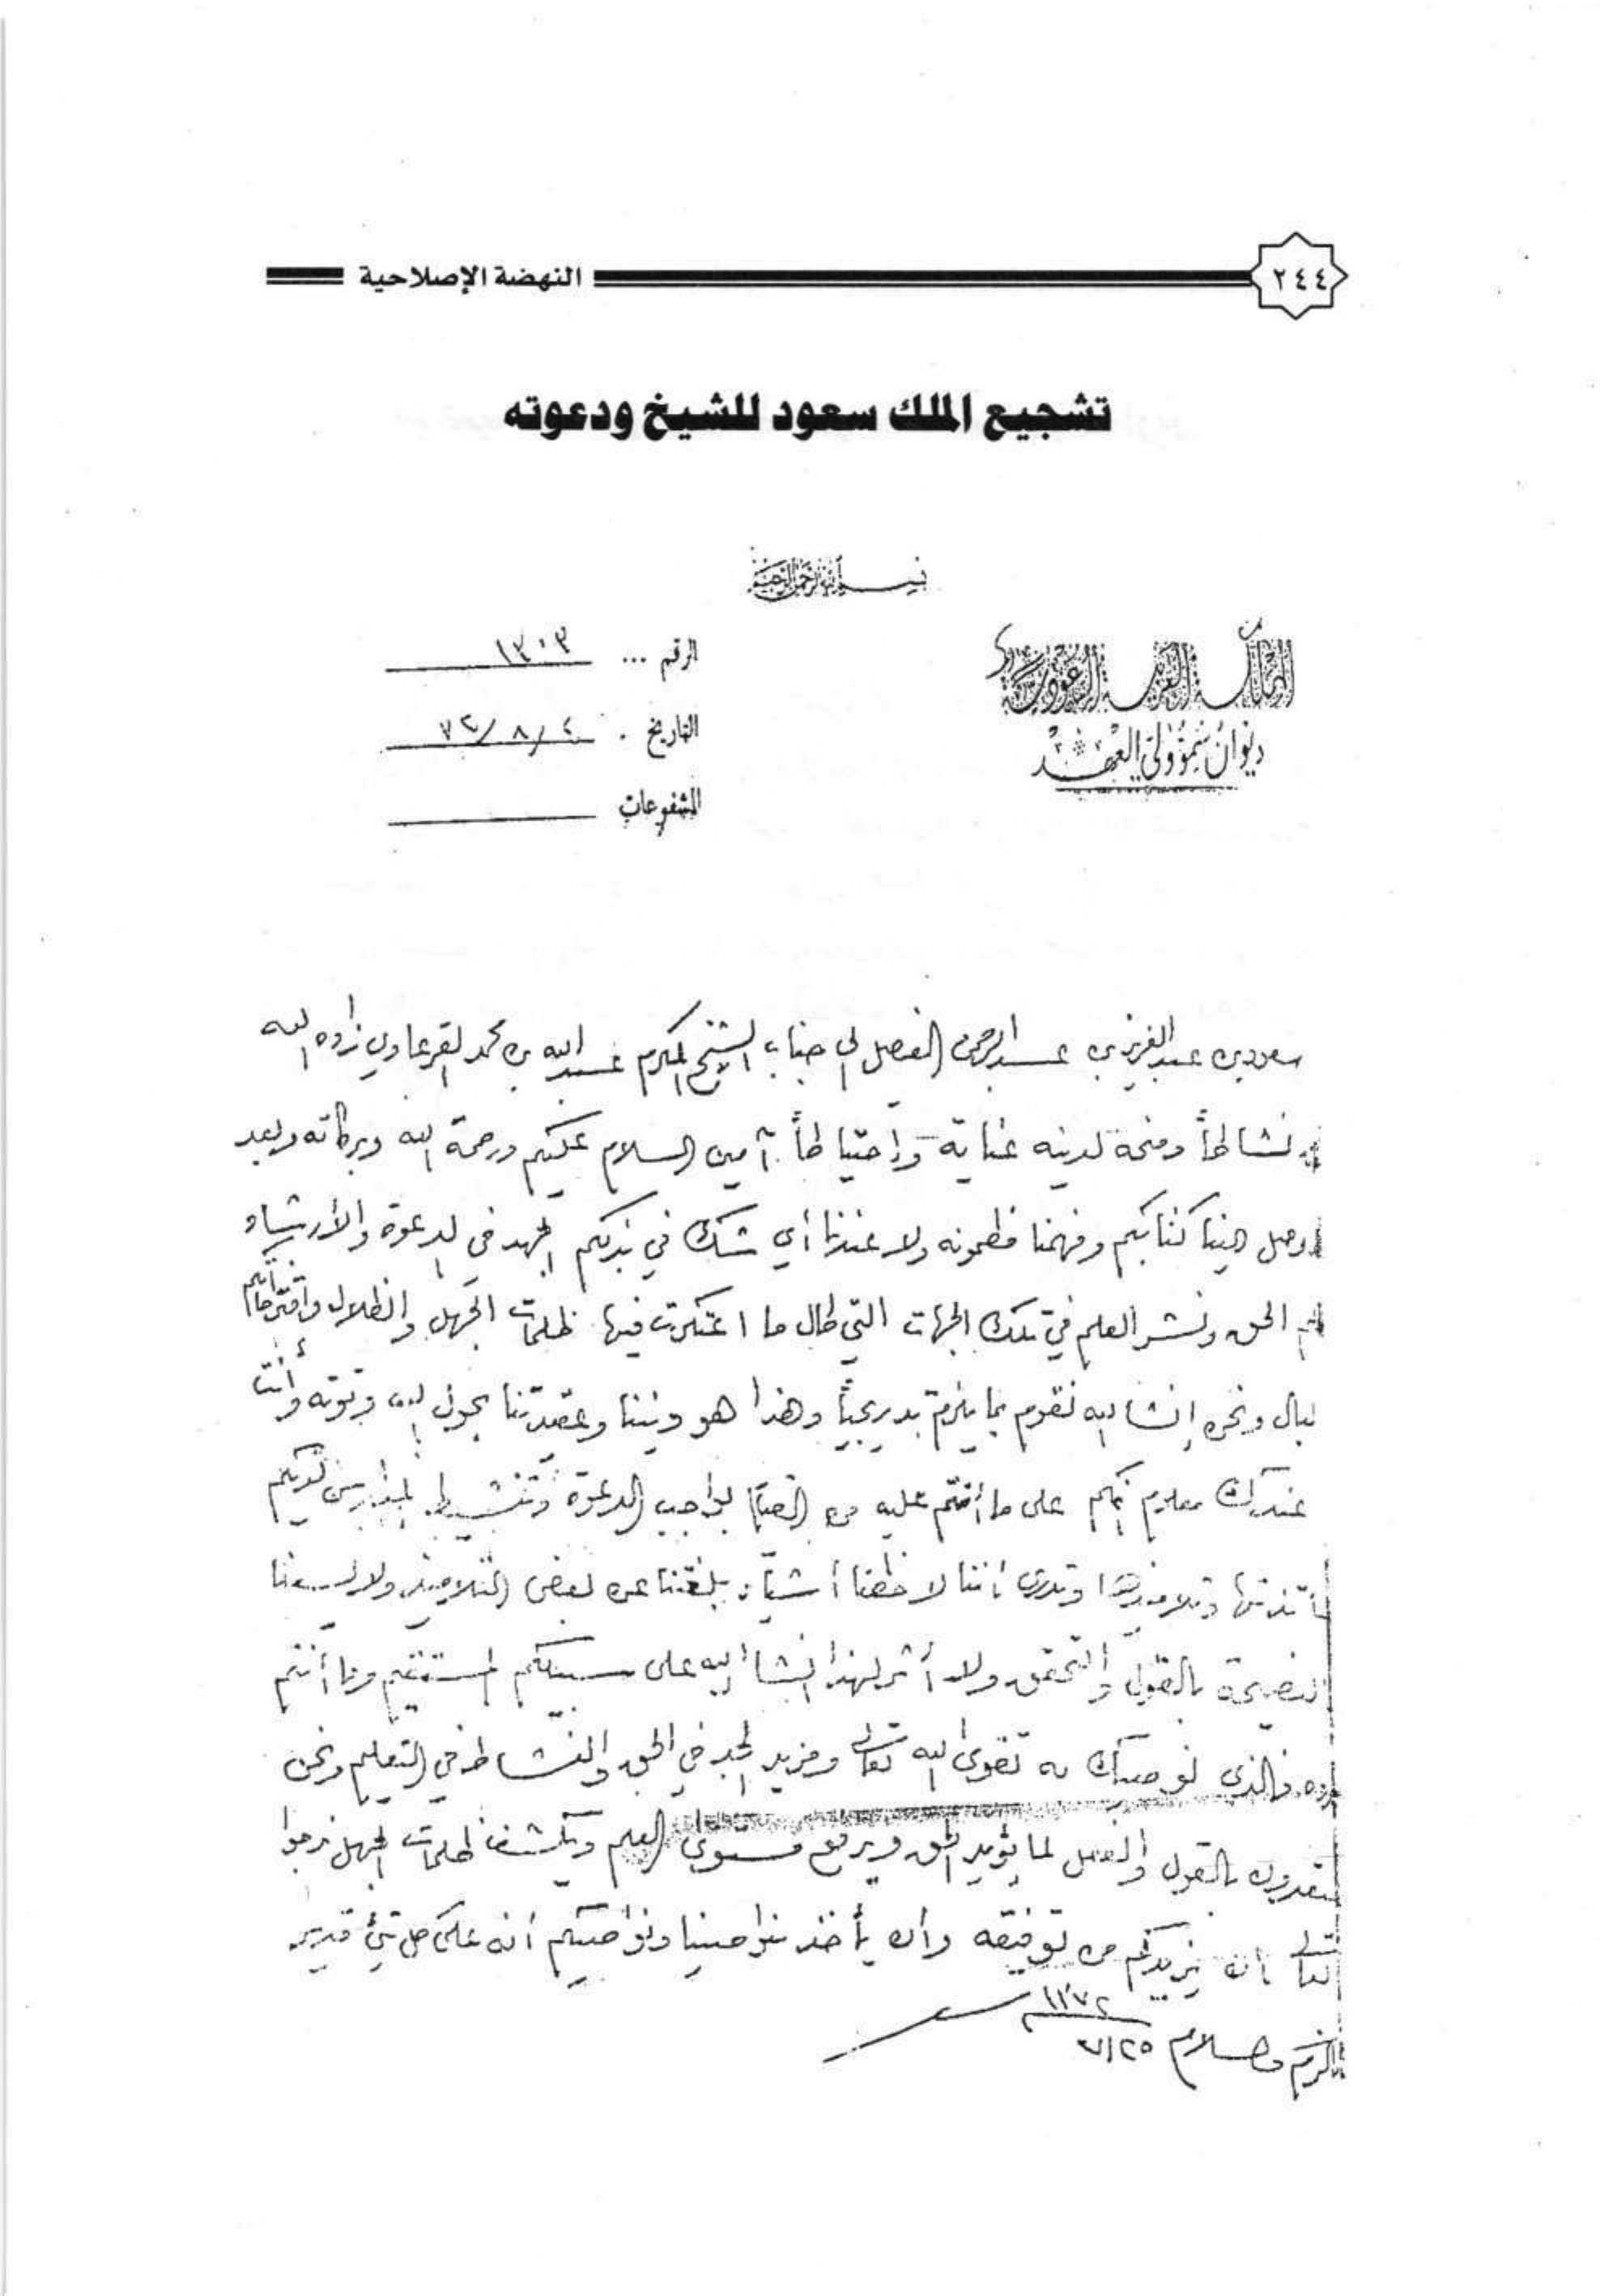 ٢٤٤
النهضة الإصلاحية
تشجيع الملك سعود للشيخ ودعوته
بسم الله الرحمن الرحيم
المملكة العربية السعودية
ديوان سمو ولي العهد
الرقم ... ١٣٠٣
التاريخ . ٤ / ٨ / ٧٢
المشفوعات
سعود بن عبد العزيز بن عبد الرحمن الفيصل الى جناب الشيخ المكرم عبد الله بن محمد القرعاوي زاده الله
نشاطاً ومنحه لدينه عناية واحتياطاً آمين السلام عليكم ورحمة الله وبركاته وبعد
وصل الينا كتابكم وفهمنا مضمونه ولا عندنا أي شك في بذلكم الجهد في الدعوة والأرشاد
الحق ونشر العلم في تلك الجهات التي طال ما اعتكرت فيها ظلمات الجهل والظلال واقتراحاتكم
بال ونحن إنشا الله نقوم بما يلزم تدريجياً وهذا هو ديننا وعقيدتنا بحول الله وقوته وأنت
عندك معلوم انكم على ما أنتم عليه من القيام بواجب الدعوة وتنشيط المدارس
وتلاميذها وتدري اننا لاحظنا أشياء بلغتنا عن بعض التلاميذ ولا يسعنا
النصيحة بالقول والتحقق ولا أثر لهذا انشا الله على سبيلكم المستقيم وما أنتم
فالذي نوصيك به تقوى الله تعالى ومزيد الجد في الحق والنشاط في التعليم ونحن
بالقول والفعل لما يؤيد الحق ويرفع مستوى العلم ويكشف ظلمات الجهل نرجوا
تعالى بان يزيدكم من توفيقه وان يأخذ بنواصينا ونواصيكم انه على كل شيء قدير
والسلام ٢٥/٧ ١٣٧٢